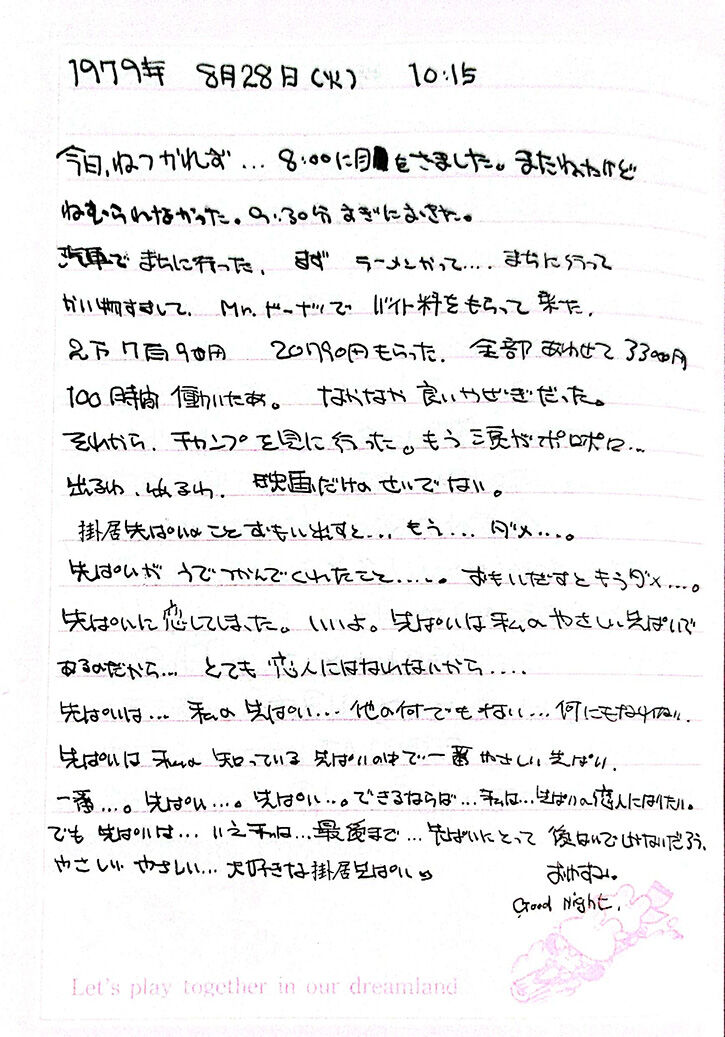 1979年 8月28日(火) 10:15
今日、ねつかれず… 8:00に目をさました。またねたけど
ねむられなかった。9:30分すぎにおきた。
汽車でまちに行った。まず ラーメンかって…. まちに行って
かい物すまして、Mr.ドーナツで バイト料をもらって来た。
2万7百90円 20790円もらった。全部あわせて33000円
100時間 働いたあ。 なかなか 良いかせぎだった。
それから、チャンプを見に行った。もう 涙がポロポロ…
出るわ、出るわ。映画だけの せいでない。
掛居先ぱいのことおもい出すと… もう… ダメ…。
先ぱいが うでつかんでくれたこと…..。 おもいだすともうダメ…。
先ぱいに恋してしまった。いいよ。先ぱいは私のやさしい先ぱいで
あるのだから… とても 恋人にはなれないから….
先ぱいは… 私の 先ぱい… 他の何でもない… 何にもなれない.
先ぱいは 私の 知っている 先ぱいの中で一番 やさしい 先ぱい.
一番…。先ぱい…。先ぱい…。できるならば… 私は… 先ぱいの恋人になりたい。
でも 先ぱいは… いえ私は… 最後まで… 先ぱいにとって 後はいでしかないだろう、
やさしい やさしい… 大好きな掛居先ぱい
おやすみ。
Good Night.
Let's play together in our dreamland